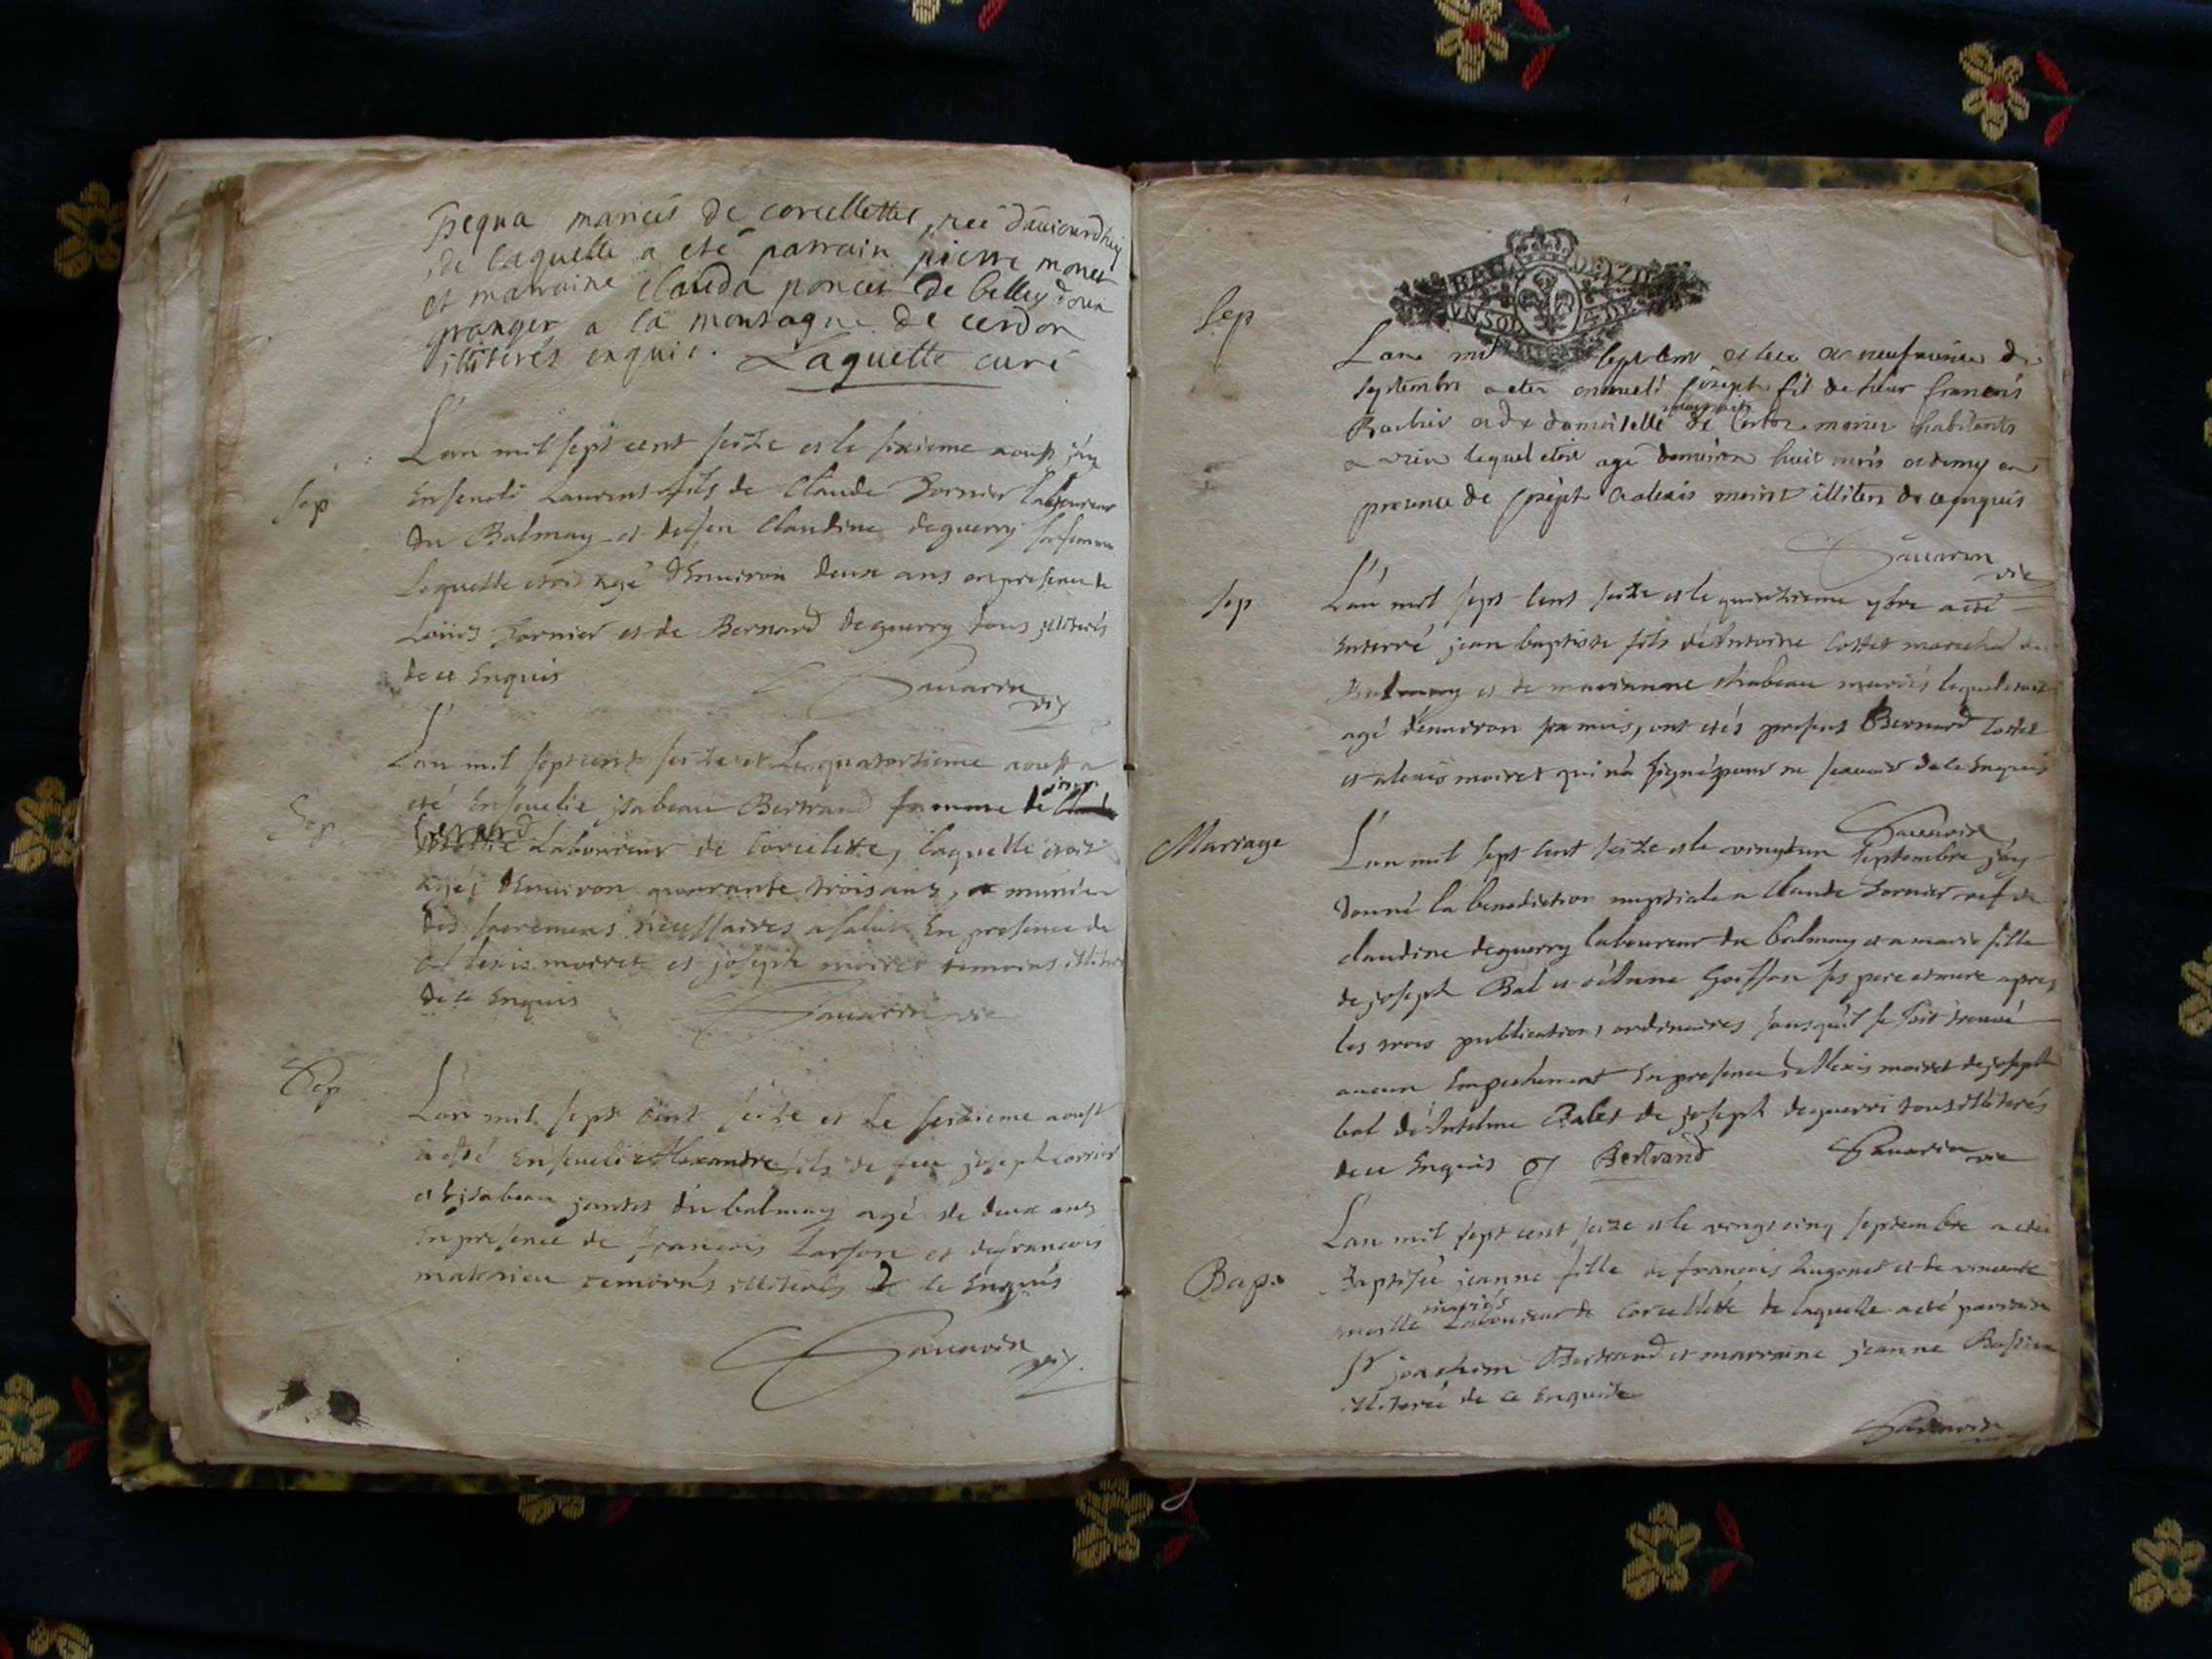 mariés de corcellettes, née d'auiourdhuy
de laquelle a eté parrain pierre moret
et marraine Clauda poncet de belleydoux
granger a la montagne de cerdon
illiterés enquis. Laguette curé
Sep
L'an mil sept cent seize et le sixieme aoust j'ay
Enseueli Laurens fils de Claude Fornier laboureur
du Balmay et de feu Claudine deguerry sa femme
Lequelle etoit agé d'Enuiron deux ans en presence de
Louis Fornier et de Bernard deguerry tous illiterés
de ce Enquis
Sauarin vic
Sep
L'an mil sept cent seize et Le quatorzieme aoust a
eté Enseuelie jsabeau Bertrand famme de
Laboureur de Corcelette, laquelle etoit
agée d'Enuiron quarante trois ans, munie
des sacremens necessaires a salut En presence de
alexis moiret et joseph moiret temoins illiterés
de ce Enquis
Sauarin vic
Sep
L'an mil sept cent seize et Le seizieme aoust
a esté Enseueli Alexandre fils de feu joseph Carrier
et jsabeau jantet du balmay agé de deux ans
En presence de françois et de francois
mathieu temoins illiterés de ce Enquis
Sauarin vic
Sep
L'an mil sept cent et seize et neufuieme de
septembre a eter enseueli joseph fil de sieur francois
Barbier et de damoiselle de mariez habitants
a lequel etoit agé denuiron huit mois et demy en
presence de joseph et alexis moiret illiters de ce enquis
Sauarin vic
Sep
L'an mil sept cent seize et le quinzieme 7bre a eté
Enterré jean baptiste fils d'Antoine Cottet marechal du
Balmay et de marianne mariés lequel etoit
agé d'enuiron six mois, ont etés present Bernard Cottet
et alexis moiret qui n'a signé pour ne scauoir de ce Enquis
Sauarin
Marriage
L'an mil sept cent seize et le vingt un septembre j'ay
donné la benediction nuptiale a Claude Fornier vef de
claudine deguerry laboureur du balmay et a marie fille
de joseph Bal et d'Anne Goiffon ses pere et mere apres
les trois publications ordinaires sans qu'il se soit trouué
aucun Empechement En presence d'Alexis moiret de joseph
bal d'Antelme Balet de joseph deguerri tous illiterés
de ce Enquis Bertrand Sauarin vic
Bap.
L'an mil sept cent seize et le vingt cinq septembre a etée
Baptisée jeanne fille de françois hugonet et de vincente
mariés
Laboureur de Corcellette de laquelle a eté parrain
Sr joachim Bertrand et marraine jeanne
illiterée de ce Enquise
Sauarin